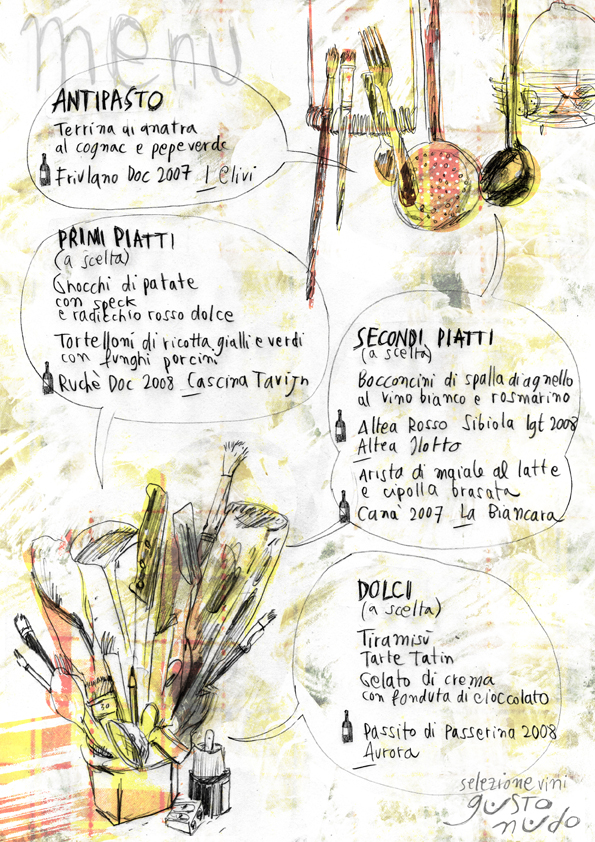 menu
ANTIPASTO
Terrina di anatra
al cognac e pepe verde
Friulano Doc 2007 I Clivi
PRIMI PIATTI
(a scelta)
Gnocchi di patate
con speck
e radicchio rosso dolce
Tortelloni di ricotta gialli e verdi
con funghi porcini
Ruchè Doc 2008 Cascina Tavijn
SECONDI PIATTI
(a scelta)
Bocconcini di spalla di agnello
al vino bianco e rosmarino
Altea Rosso Sibiola Igt 2008
Altea Illotto
Arista di maiale al latte
e cipolla brasata
Canà 2007 La Biancara
DOLCI
(a scelta)
Tiramisù
Tarte Tatin
Gelato di crema
con fonduta di cioccolato
Passito di Passerina 2008
Aurora
selezione vini
gusto
nudo